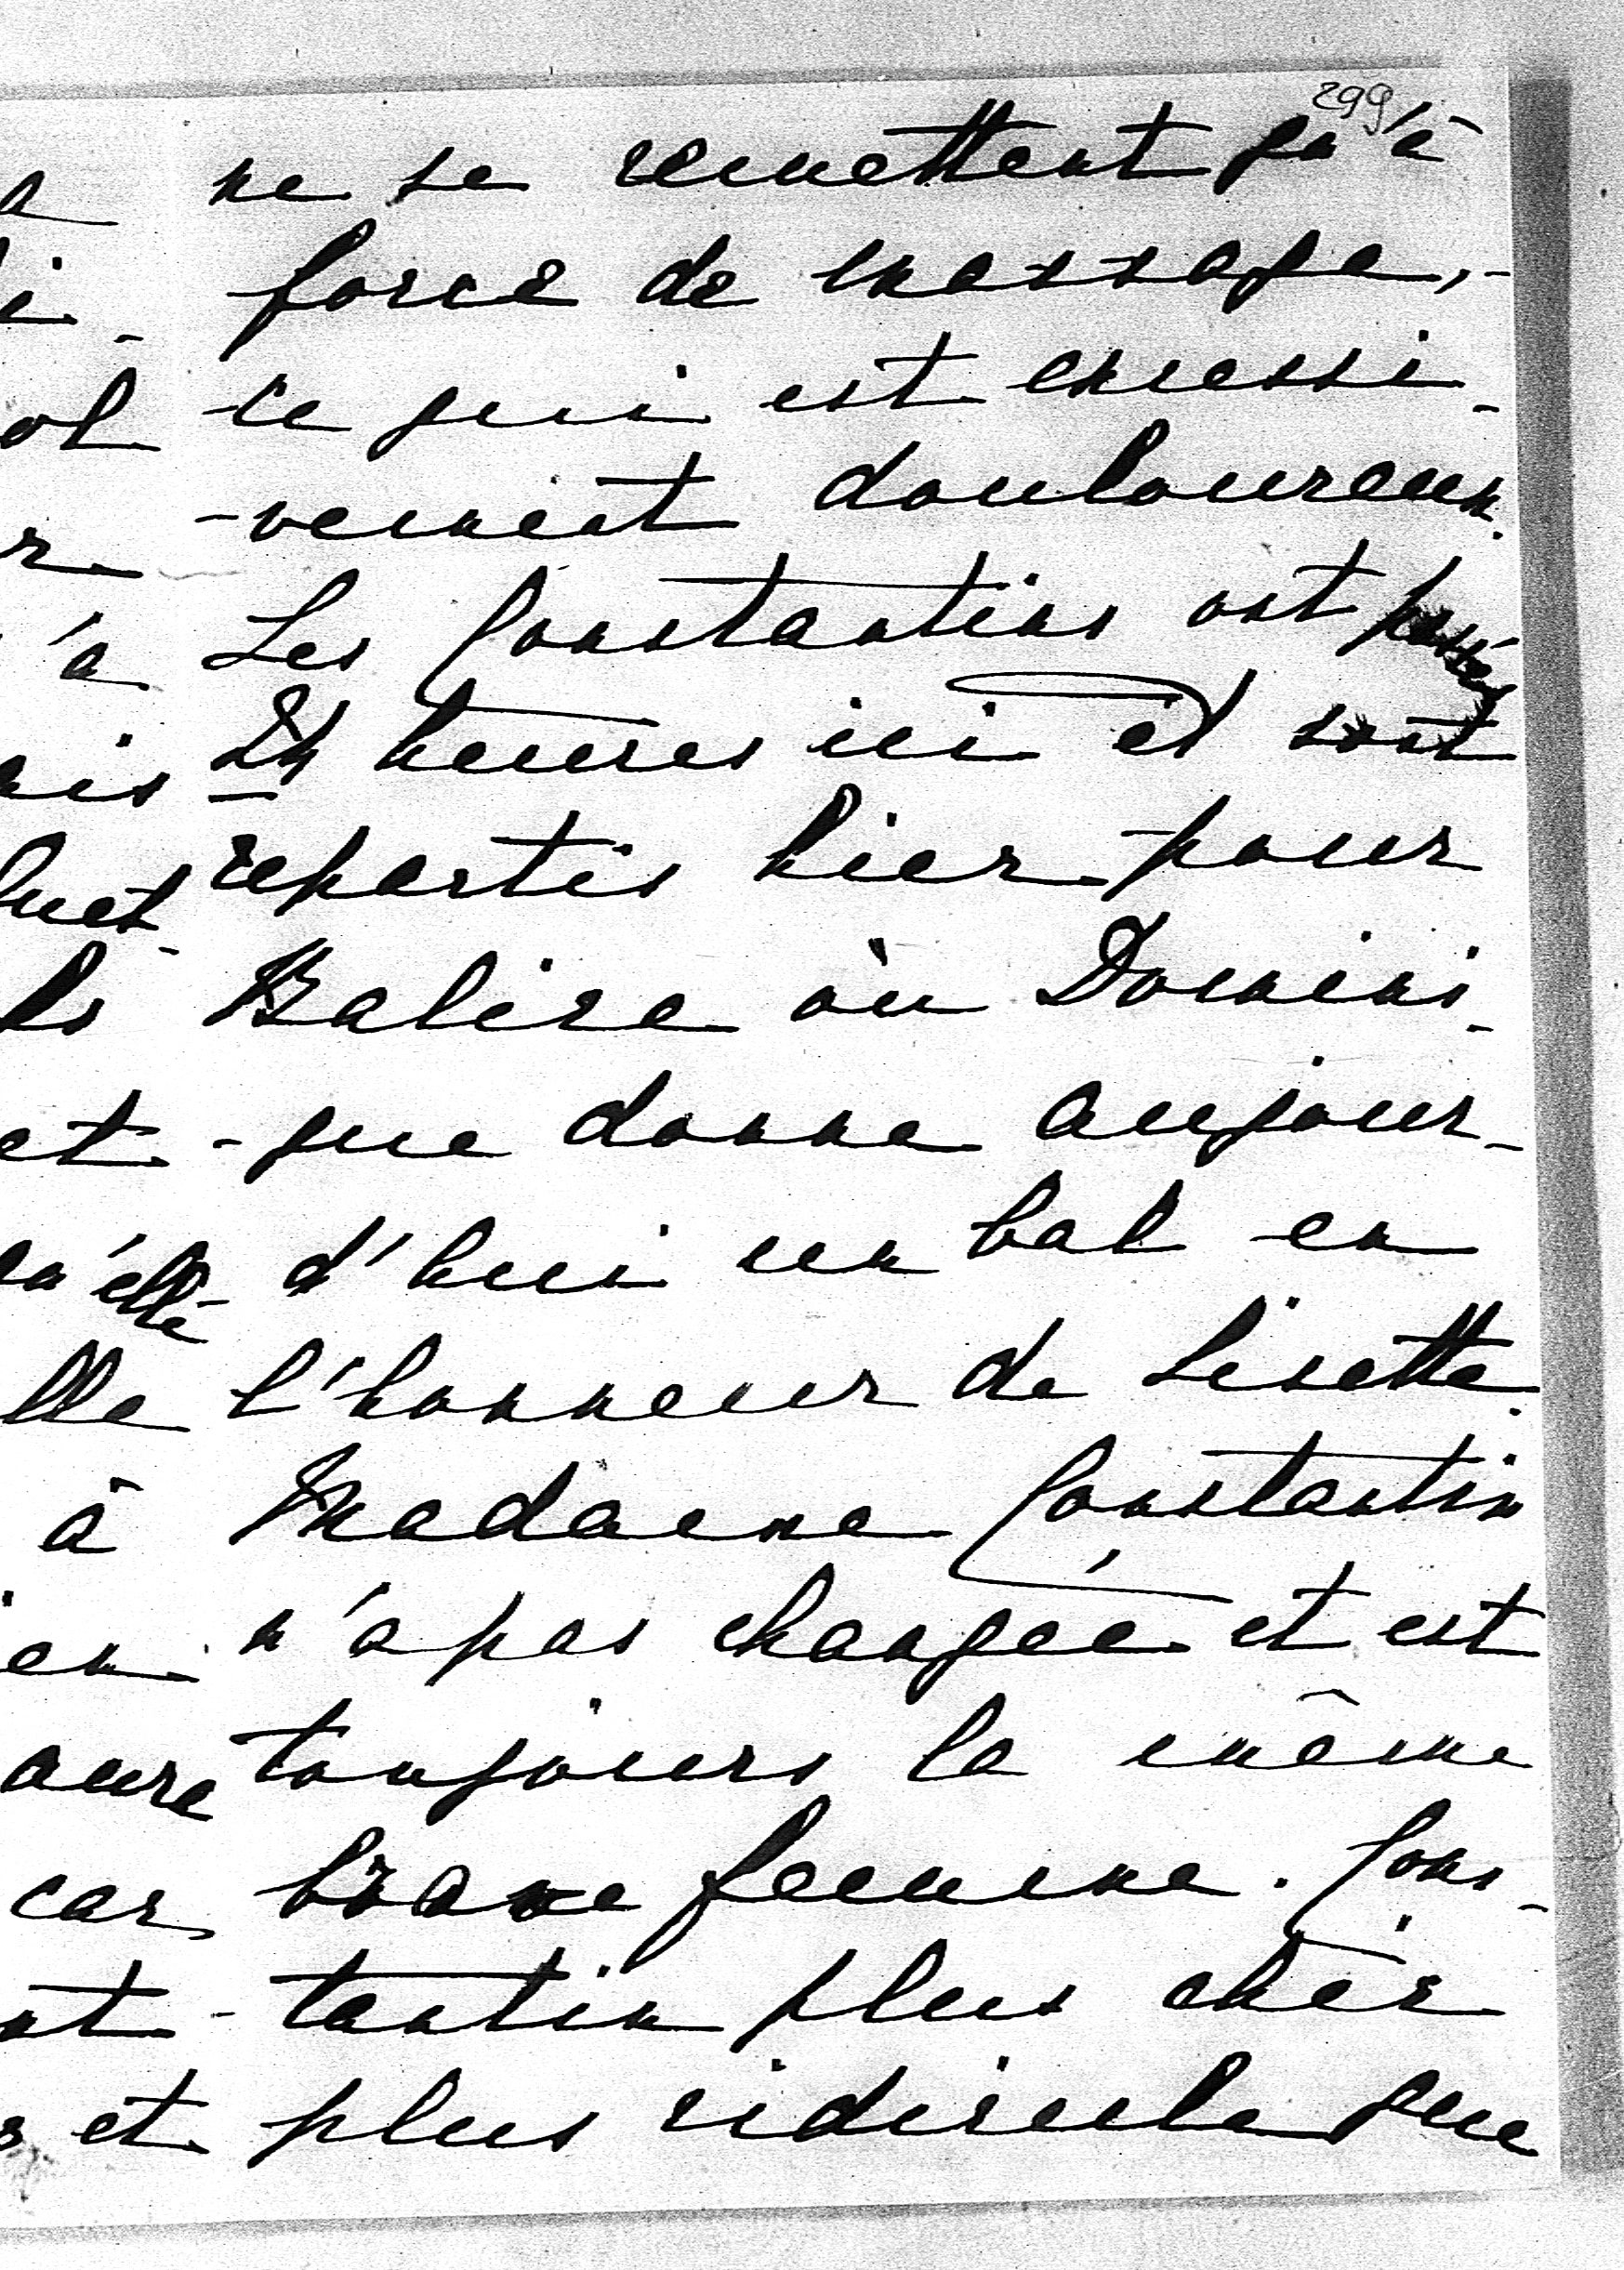 299
ne se remettent qu'à
force de massage,-
ce qui est excessi-
-vement douloureux.
Les Constantins ont passés
24 heures ici et sont
repartis hier pour
où Domini-
-que donne aujour-
d'hui un bal en
l'honneur de Lisette.
Madame Constantin
n'a pas changée et est
toujours la même
brave femme. Cons-
-tantin plus cher
et plus ridicule que